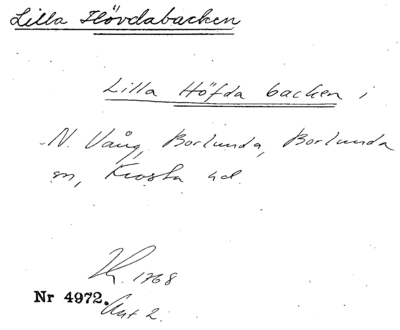 Lilla Hövdabacken
Lilla Höfda backen i
N. Vång, Borlunda, Borlunda
sn, Frosta hd.
1768
Nr 4972. Akt 2.